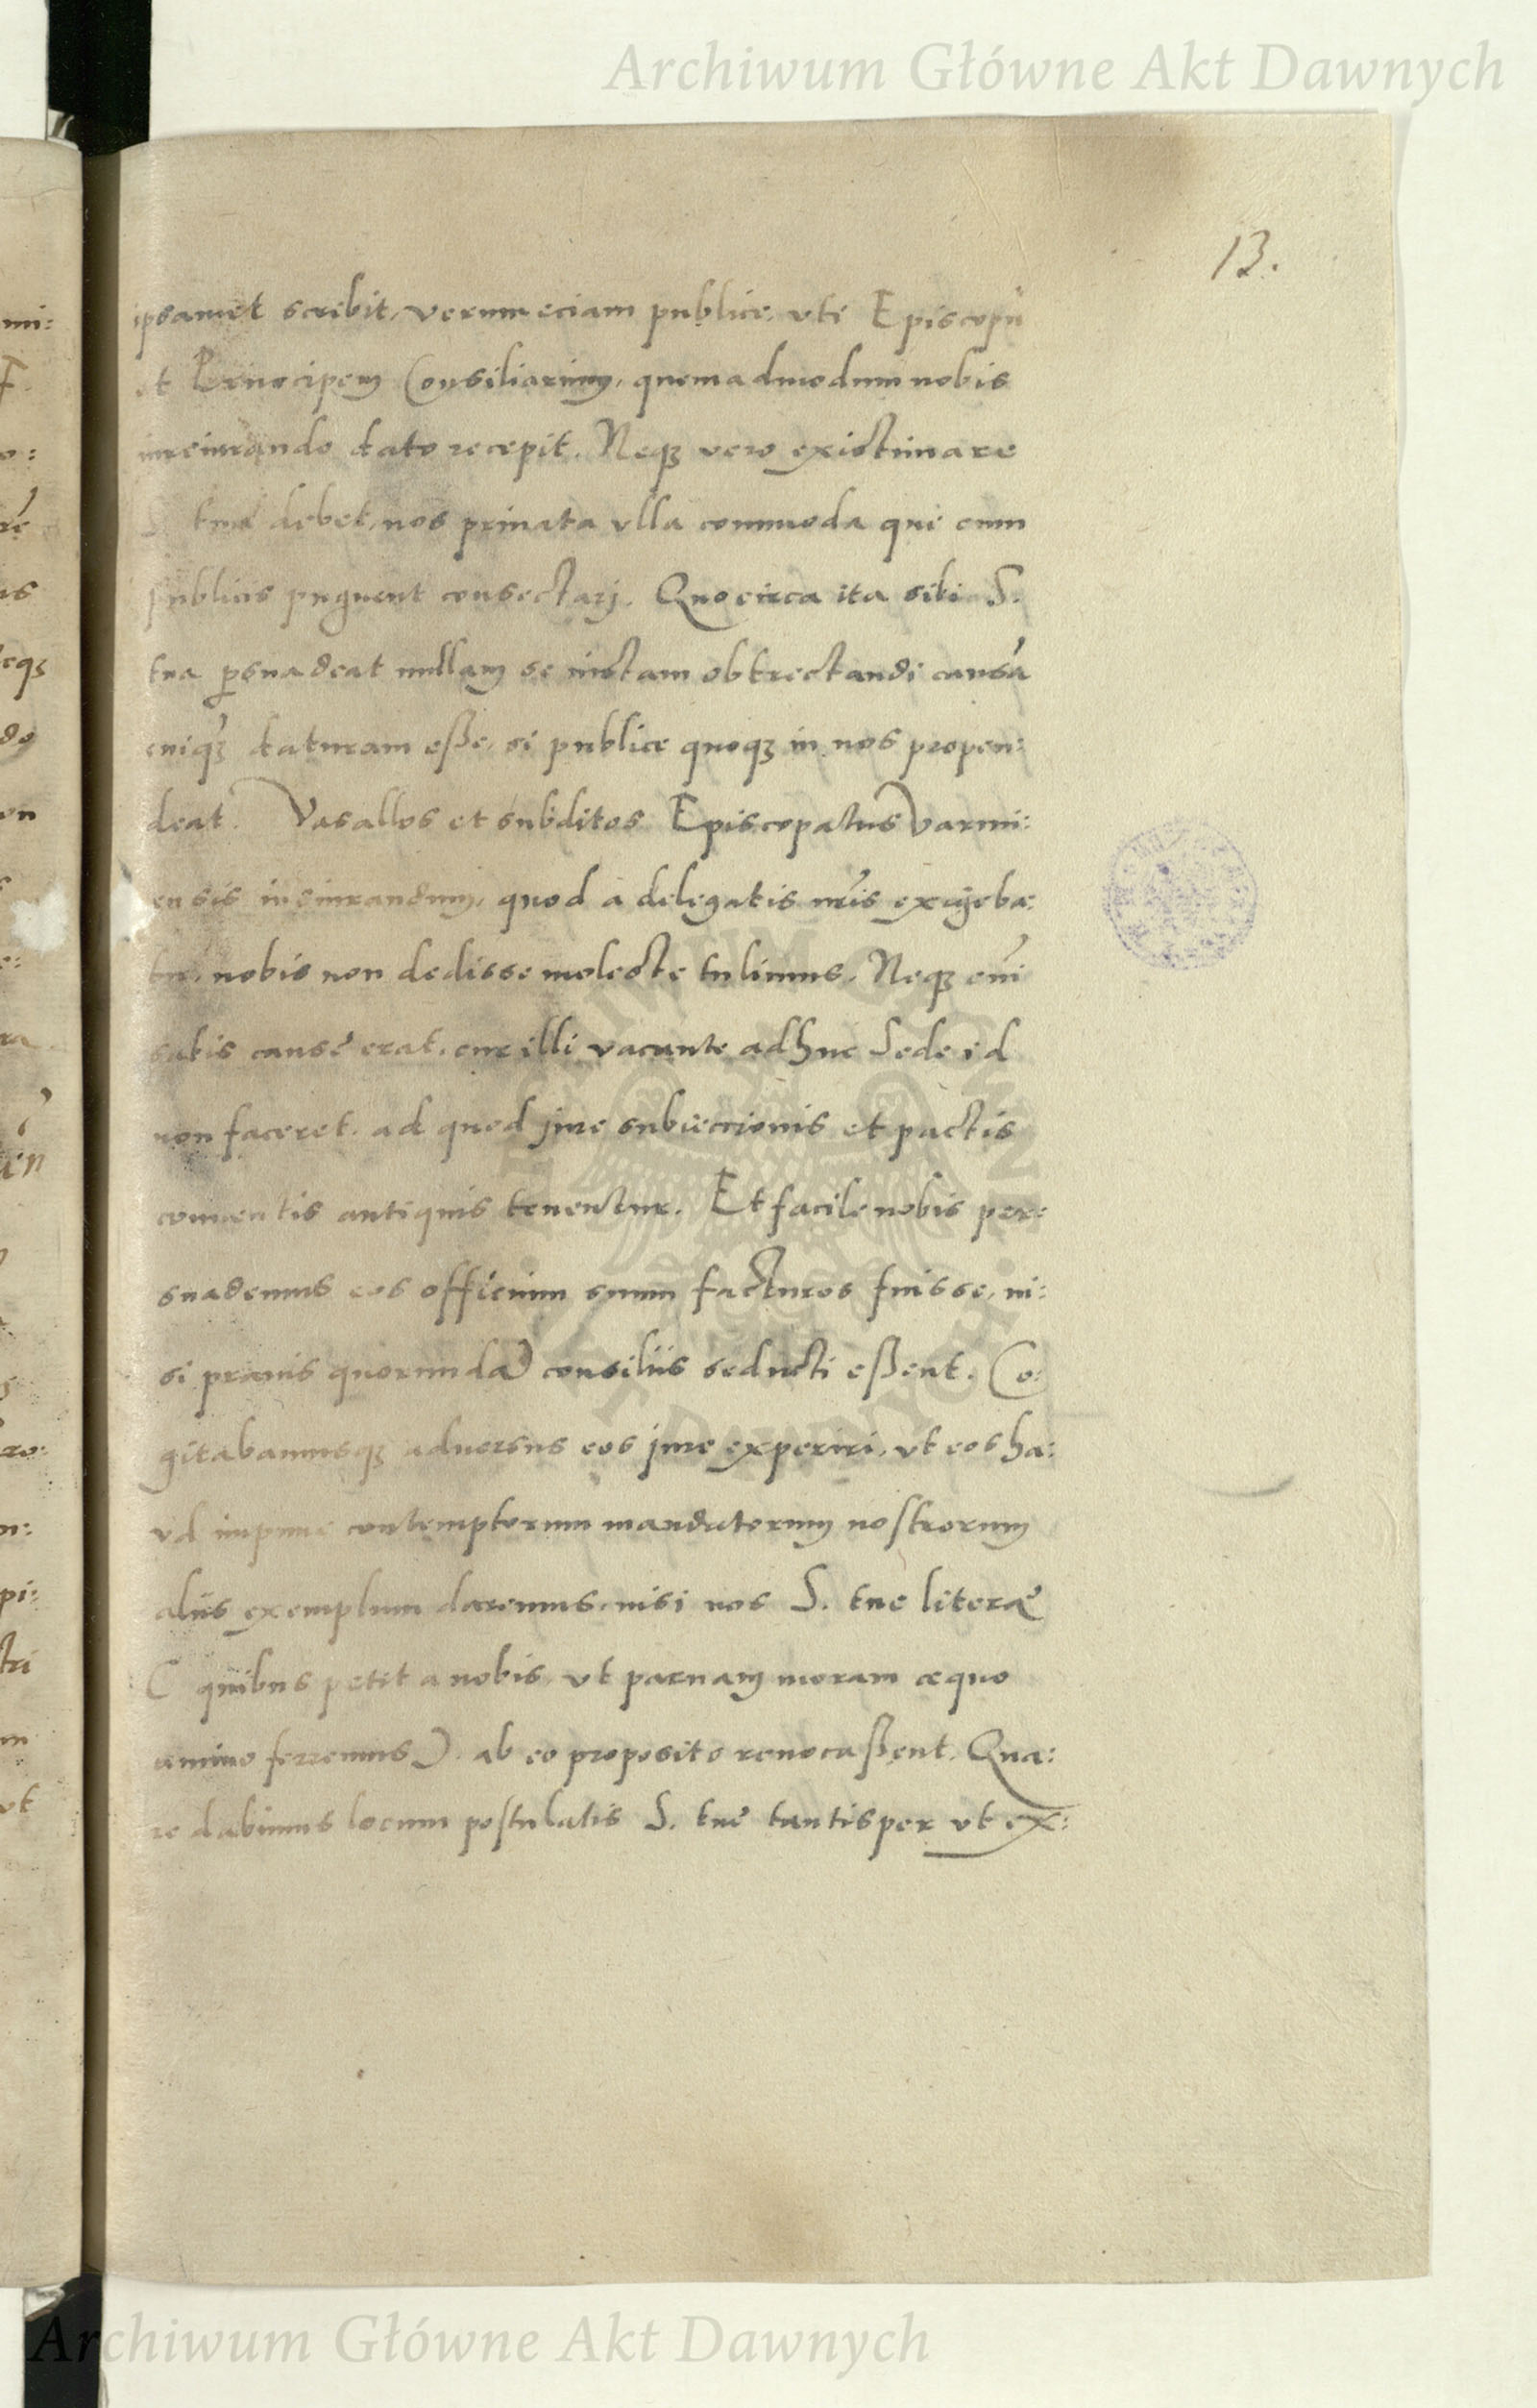 Archiwum Główne Akt Dawnych
13.
ipsamet scribit, verum eciam publice, vti Episcopū
et Princcipem Consiliarium, quemadmodum nobis
iureiurando dato recepit. Neqꝫ vero existimare
S. tua debet, nos priuata vlla commoda que cum
publicis pugnent consectarj. Quocirca ita sibi S.
tua ꝑsuadeat nullam se iustam obtrectandi causā
cuiqꝫ daturam eße, si publice quoqꝫ in nos propen:
deat. Vasallos et subditos Episcopatus Varmi:
ensis iusiurandum, quod a delegatis nr̄is exigeba:
tur, nobis non dedisse moleste tulimus. Neqꝫ em̄
satis causę erat, cur illi vacante adhuc Sede id
non faceret, ad quod jure subiectionis et pactis
conuentis antiquis tenentur. Et facile nobis per:
suademus eos officium suum facturos fuisse, ni:
si prauis quorundā consiliis seducti eßent. Co:
gitabamusqꝫ aduersus eos jure experiri, vt eos ha:
ud impune contemptorum mandatorum nostrorum
aliis exemplum daremus, nisi nos S. tuę literæ
( quibus petit a nobis, vt paruam moram æquo
animo ferremus ) ab eo proposito reuocaßent. Qua:
re dabimus locum postulatis S. tuę tantisper vt ex:
Archiwum Główne Akt Dawnych